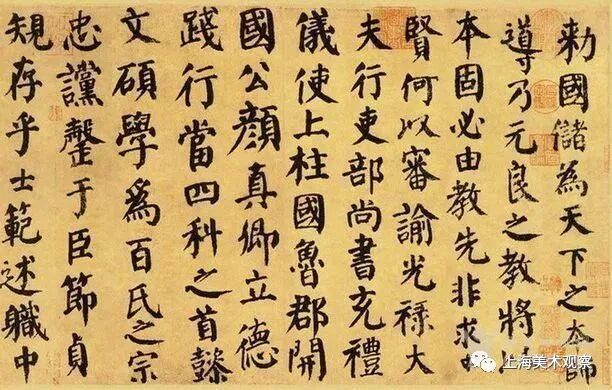 勅國儲為天下之本師
導乃元良之教將
本固必由教先非求
賢何以審諭光祿大
夫行吏部尚書充禮
儀使上柱國魯郡開
國公顏真卿立德
踐行當四科之首懿
文碩學爲百氏之宗
忠讜罄于臣節貞
規存乎士範述職中
上海美术观察